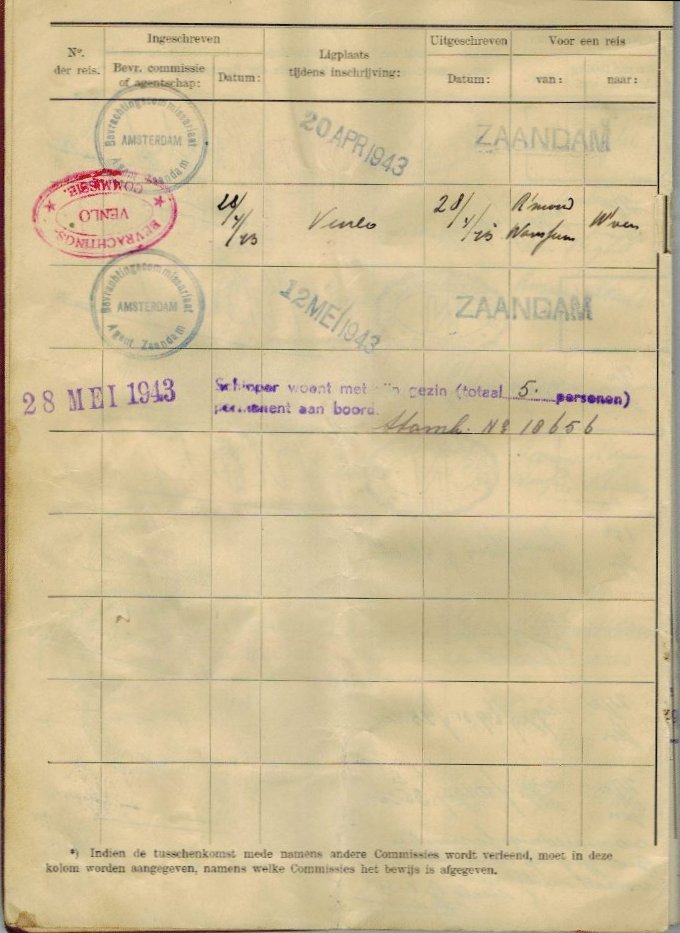 Nº. der reis.
Ingeschreven
Bevr. commissie of agentschap:
Datum:
Ligplaats tijdens inschrijving:
Uitgeschreven
Datum:
Voor een reis
van:
naar:
Bevrachtingscommissariaat
AMSTERDAM
Agent. Zaandam
20 APR 1943
ZAANDAM
BEVRACHTINGS-
VENLO
COMMISSIE.
Venlo
28/
Bevrachtingscommissariaat
AMSTERDAM
Agent. Zaandam
12 MEI 1943
ZAANDAM
28 MEI 1943
Schipper woont met zijn gezin (totaal 5. personen)
permanent aan boord.
Stamk. Nº 18656
*) Indien de tusschenkomst mede namens andere Commissies wordt verleend, moet in deze
kolom worden aangegeven, namens welke Commissies het bewijs is afgegeven.